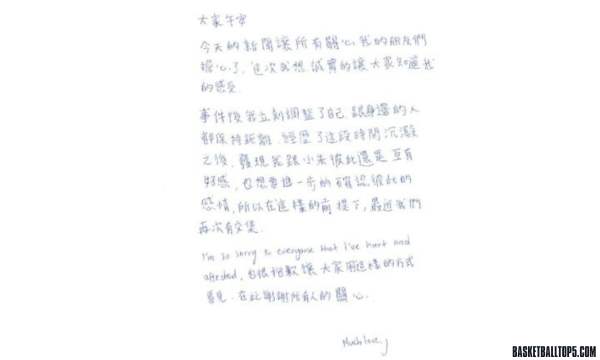 大家午安
今天的新聞讓所有關心我的朋友們
擔心了, 這次我想誠實的讓大家知道我
的感受.
事件後我立刻調整了自己, 跟身邊的人
都保持距離. 經歷了這段時間沉澱
之後, 發現我跟小禾彼此還是互有
好感, 也想要進一步的確認彼此的
感情, 所以在這樣的前提下, 最近我們
再次有交集.
I'm so sorry to everyone that I've hurt and
affected, 也很抱歉讓大家用這樣的方式
看見. 在此謝謝所有人的關心.
Much love,
BASKETBALLTOP5.COM